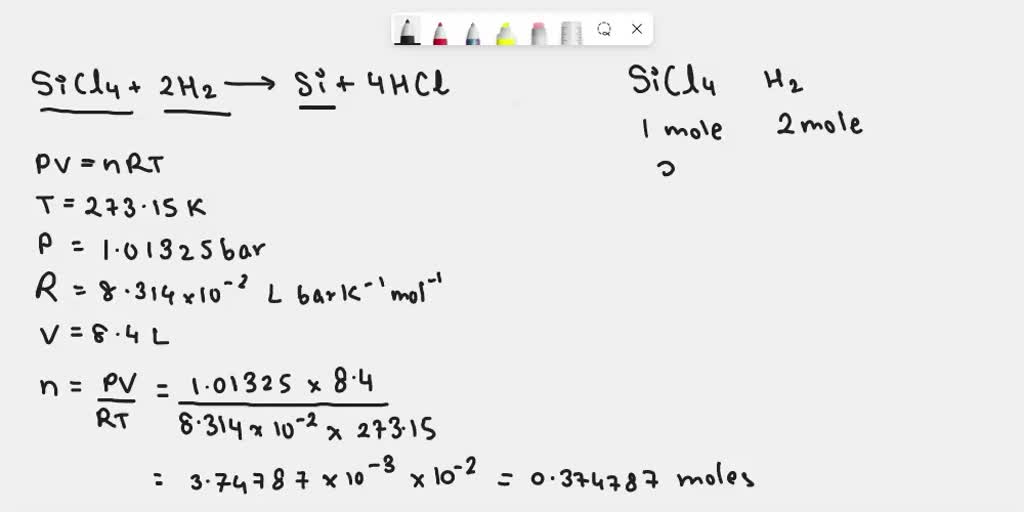 SiCl4 + 2H2 → Si + 4HCl
SiCl4 H2
1 mole 2 mole
PV = nRT
T = 273.15 K
P = 1.01325 bar
R = 8.314 × 10⁻² L bar K⁻¹ mol⁻¹
V = 8.4 L
n = PV/RT = 1.01325 × 8.4 / 8.314 × 10⁻² × 273.15
= 3.74787 × 10⁻³ × 10⁻² = 0.374787 moles